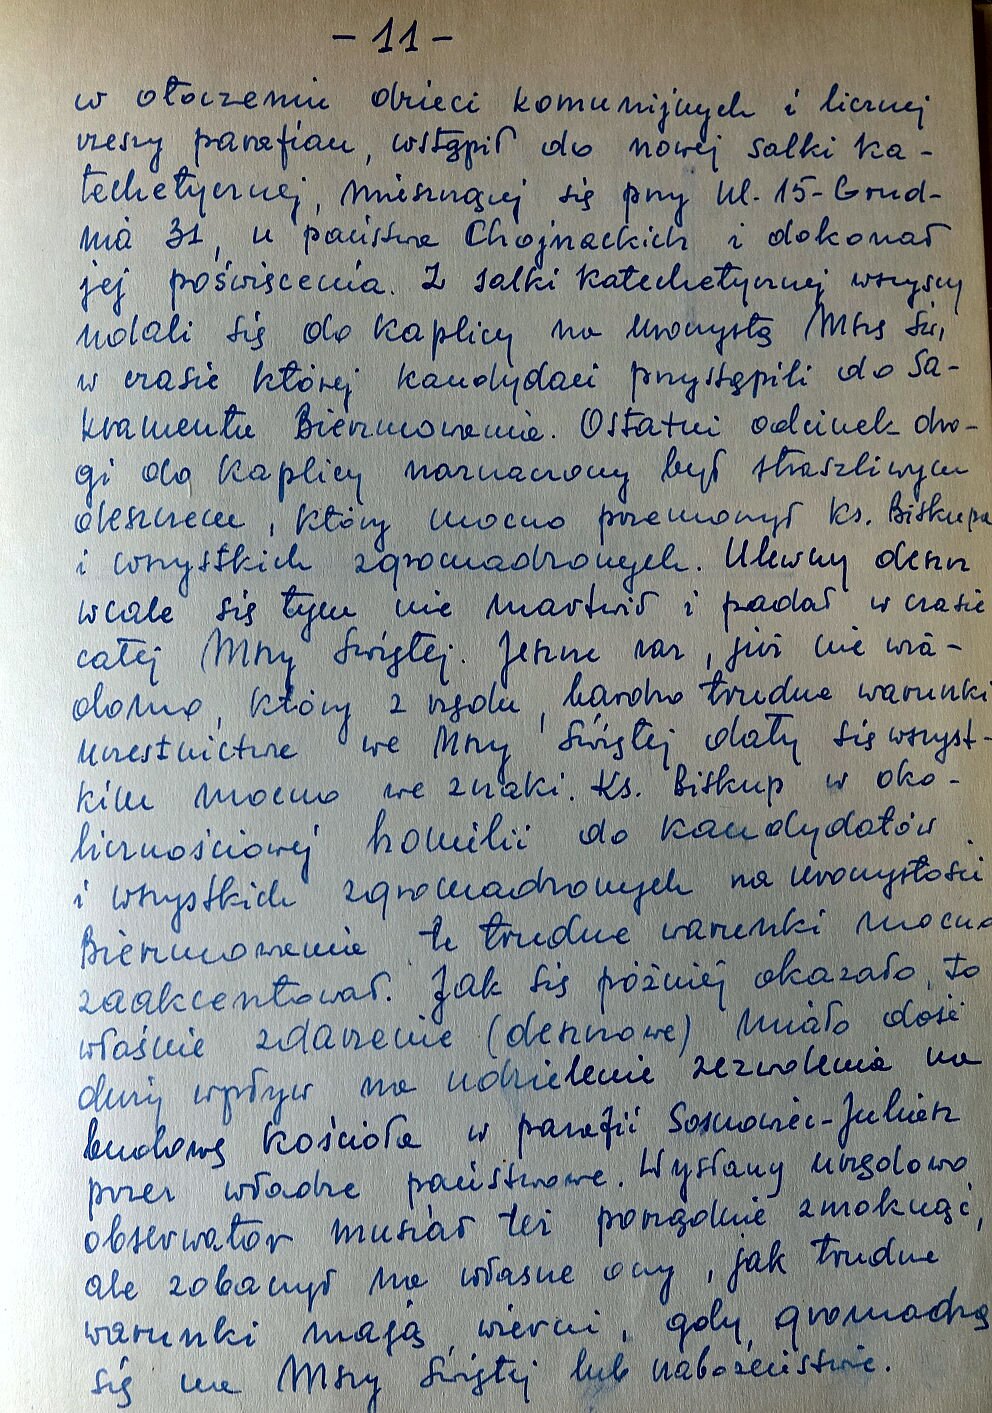 - 11 -
w otoczeniu dzieci komunijnych i licznej
rzeszy parafian, wstąpił do nowej salki ka-
techetycznej, mieszczącej się przy ul. 15-Grud-
nia 31, u państwa Chojnackich i dokonał
jej poświęcenia. Z salki katechetycznej wszyscy
udali się do kaplicy na uroczystą Mszę św.,
w czasie której kandydaci przystąpili do Sa-
kramentu Bierzmowania. Ostatni odcinek dro-
gi do kaplicy naznaczony był straszliwym
deszczem, który mocno przemoczył ks. Biskupa
i wszystkich zgromadzonych. Ulewny deszcz
wcale się tym nie martwił i padał w czasie
całej Mszy Świętej. Jeszcze raz, już nie wia-
domo, który z rzędu, bardzo trudne warunki
uczestnictwa we Mszy Świętej dały się wszyst-
kim mocno we znaki. Ks. Biskup w oko-
licznościowej homilii do kandydatów
i wszystkich zgromadzonych na uroczystości
Bierzmowania te trudne warunki mocno
zaakcentował. Jak się później okazało, to
właśnie zdarzenie (deszczowe) miało dość
duży wpływ na udzielenie zezwolenia na
budowę kościoła w parafii Sosnowiec-Juliusz
przez władze państwowe. Wysłany urzędowo
obserwator musiał też porządnie zmoknąć,
ale zobaczył na własne oczy, jak trudne
warunki mają wierni, gdy gromadzą
się na Mszy Świętej lub nabożeństwie.